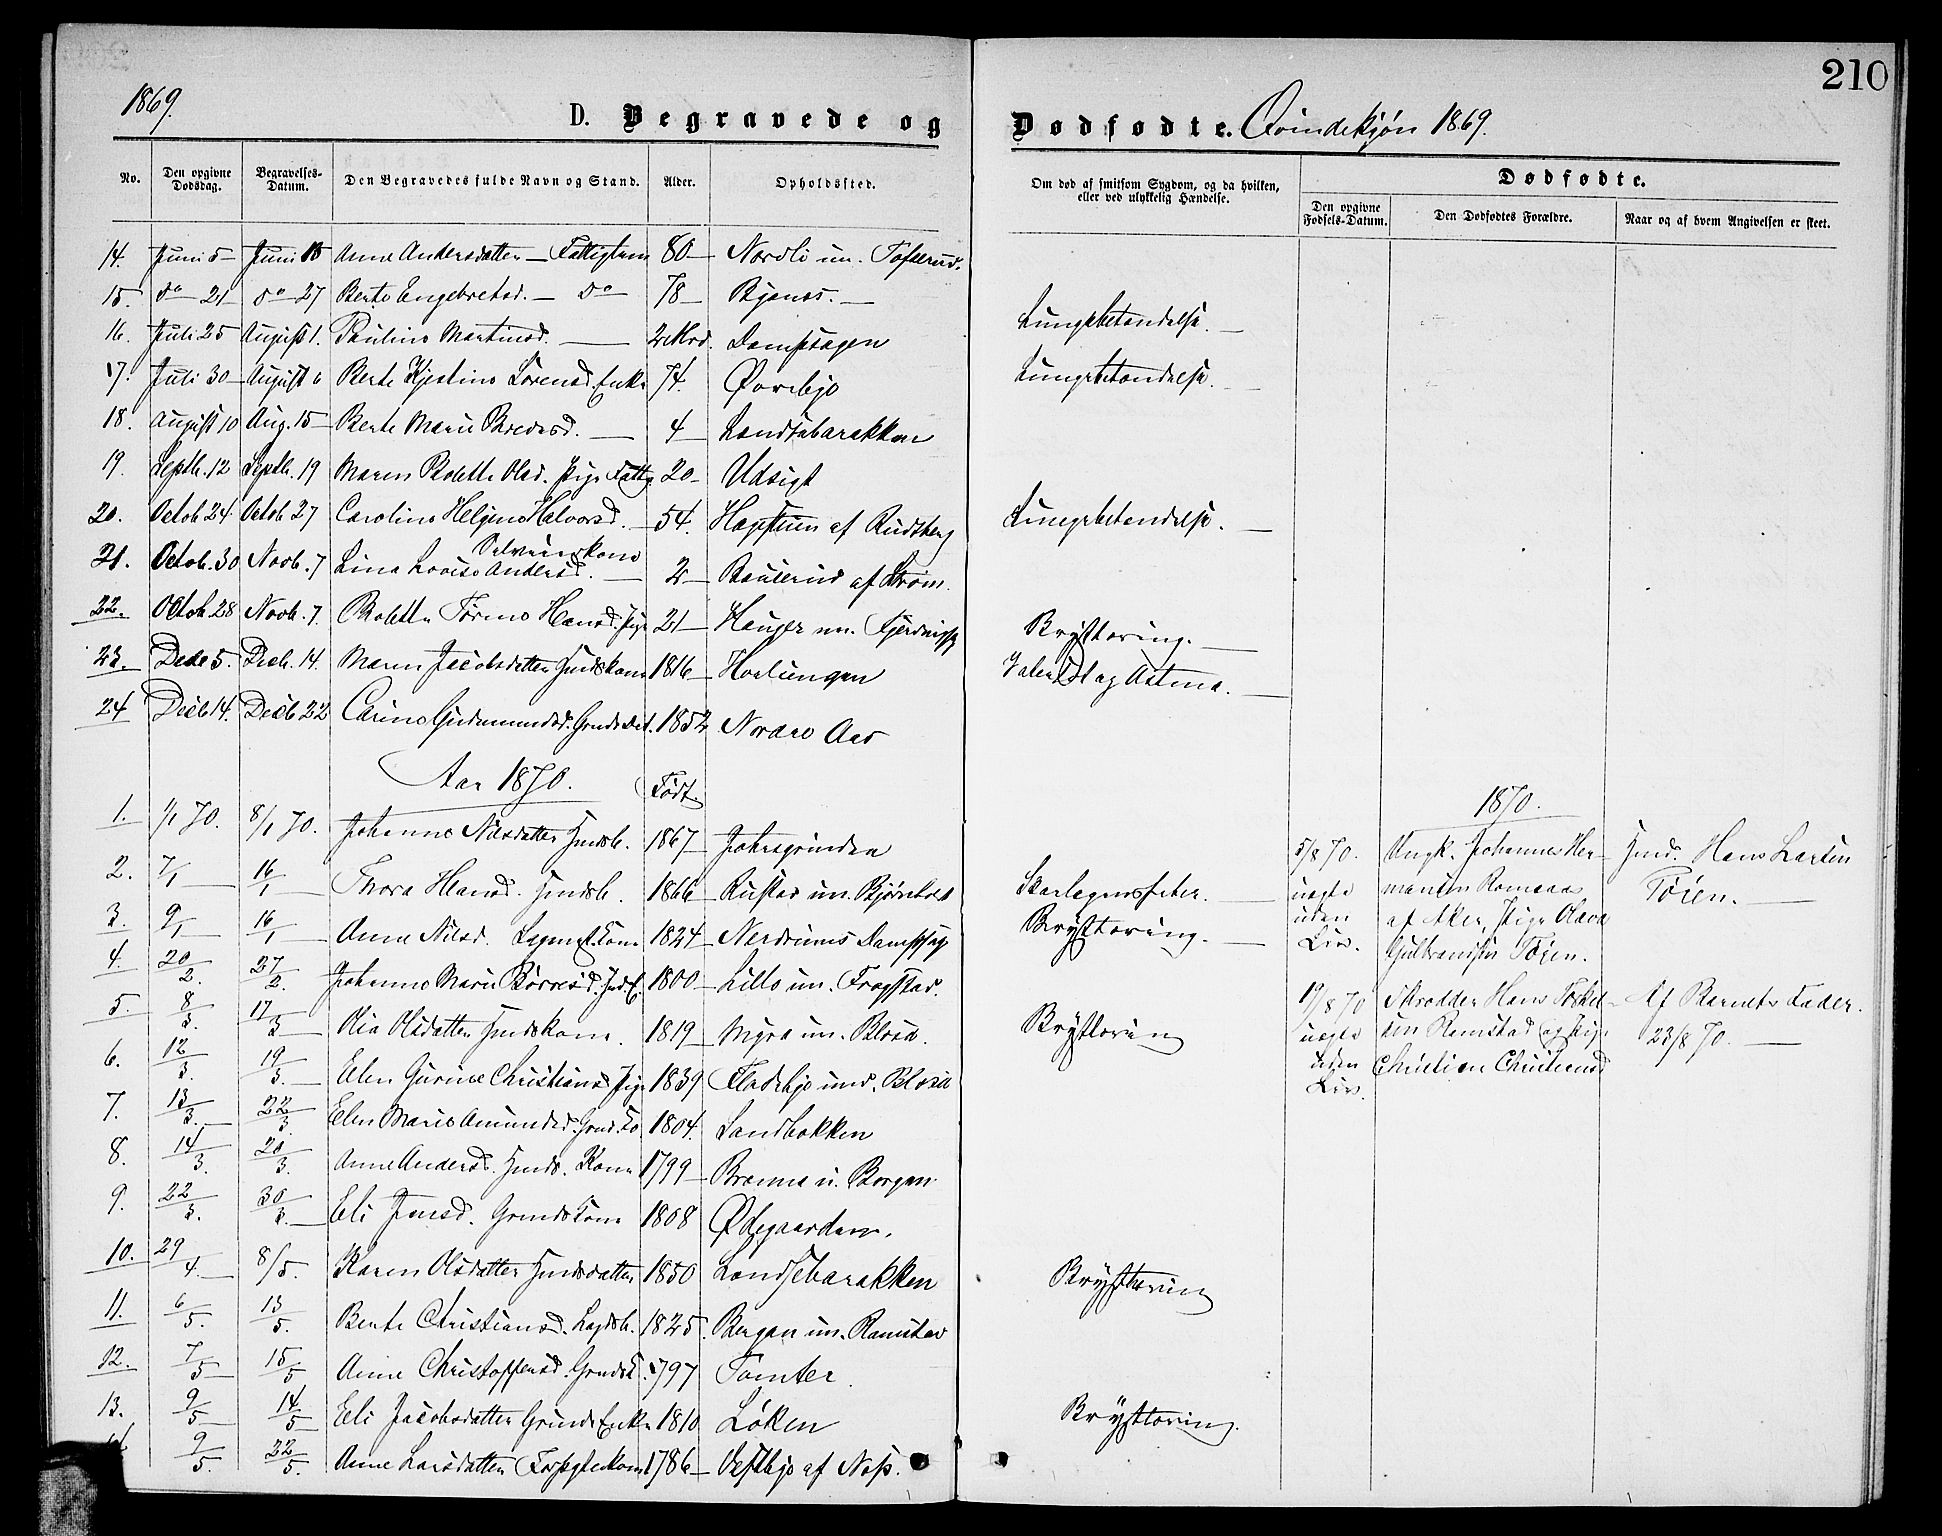 210
1869.
D. Begravede og Dødfødte. Qvindekjøn 1869.
No. Den opgivne Dødsdag. Begravelses-Datum. Den Begravedes fulde Navn og Stand. Alder. Opholdssted. Om død af smitsom Sygdom, og da hvilken, eller ved ulykkelig Hændelse. Dødfødte.
Den opgivne Fødsels-Datum. Den Dødfødtes Forældre. Naar og af hvem Angivelsen er skeet.
14. Juni 5 Juni 15 Anne Andersdatter — Fattiglem 80 Nordli un. Tofserud.
15. do 21 do 27 Berte Engebretsd. — do 78 Bjenes. — Lungebetændelse. —
16. Juli 25 August 1. Pauline Martinsd. — 2 Mnd. Dampsagen
17. Juli 30 August 6 Berte Kjestine Sørensd. Enke 74. Øvrebyo Lungebetændelse. —
18. August 10 Aug. 15 Berte Marie Bredesd. — 4 Landsebarakken
19. Septb. 12 Septb. 19 Maren Bolette Olsd. Pige Fattg. 20 Udsigt
20. Octob. 24 Octob 27 Caroline Helgine Halvorsd. — 54. Hagstuen af Rudsberg Lungebetændelse. —
Selveierkone
21. Octob. 30 Novb. 7 Lina Lovise Andersd. — 2 Bauserud af Strøm.
22. Octob. 28 Novb. 7. Bolette Tørine Hansd. Pige 21 Hauger un. Brysttæring. —
23. Decb 5. Decb. 14. Maren Jacobsdatter Huuskone 1816 Horlungen og Astma. —
24 Decb 14. Decb 22 Carine Gudmundsd. Grdsdat. 1852 Nordre Aas
Aar 1870. Født.
1. 1/1 70. 8/1 70. Johanne Nilsdatter Hmdsb. 1867 Johrsgrinden
2. 7/1 16/1 Thora Hansd. Hmdsb. 1866 Rustad un. Bjørnholt Skarlagensfeber. —
3. 9/1 16/1 Anne Nilsd. Kone 1824 Nerdrums Dampsag Brysttæring. —
4. 20/2. 27/2. Johanne Marie Børresd. 1800 Lillo un. Frogstad.
5. 8/3. 17/3 Olia Olsdatter Hmdskone. 1819 Myra un. Blesa. Brysttæring
6. 12/3 19/3. Elen Gurine Christiansd Pige 1839 Fladebyo und. Blesa
7. 13/3. 22/3. Elen Marie Amundsd. Grmd. Ko 1804. Sandbakken
8. 14/3. 20/3. Anne Andersd. Hmds. Kone 1799 Brænna u. Borgen
9. 22/3. 30/3. Eli Jensd. Grmds Kone 1808 Ødegaarden.
10. 29/4. 8/5. Karen Olsdatter Hmdsdatter 1850 Landsebarakken Brysttæring
11. 6/5. 13/5. Berte Christiansd. Lagdsb. 1825. Bergan un. Ramstad
12. 7/5 15/5 Anne Christoffersd. Grmds K. 1797 Tomter
13. 9/5 14/5 Eli Jacobsdatter Grmds Enke 1810 Løken Brysttæring.
9/5. 22/5. Anne Larsdatter 1786 Vestbyo af Næs.
1870.
5/8 70. uægte uden Liv.
Ungk. Johannes Hermansen Romsaas
af Aker, Pige Olava
Gulbransen Tøien.
Hmd. Hans Larsen
Tøien. —
19/8 70 uægte uden Liv.
Skrædder Hans
Ramstad og Pige
Christine Christensd
Af Barnets Fader.
23/8 70. —